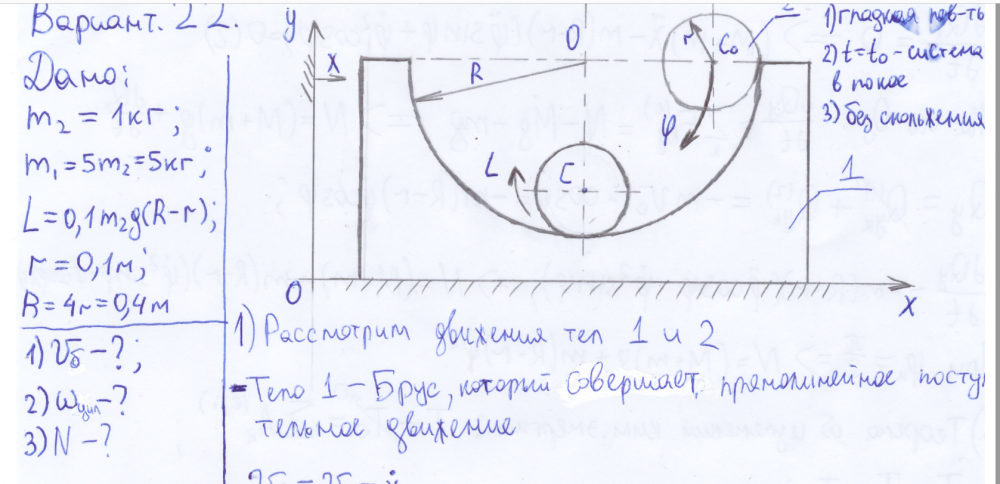 Вариант. 22.
Дано:
m₂ = 1кг;
m₁=5m₂=5кг;
L=0,1m₂g(R-r);
r=0,1м;
R=4r=0,4м
1) V_б-?;
2) ω_цил-?
3) N-?
y
x
R
O
r
C₀
φ
L
C
O
x
1) гладкая пов-ть
2) t=t₀-система
в покое
3) без скольжения
1
1) Рассмотрим движения тел 1 и 2
-Тело 1 - Брус, который совершает, прямолинейное посту
тельное движение